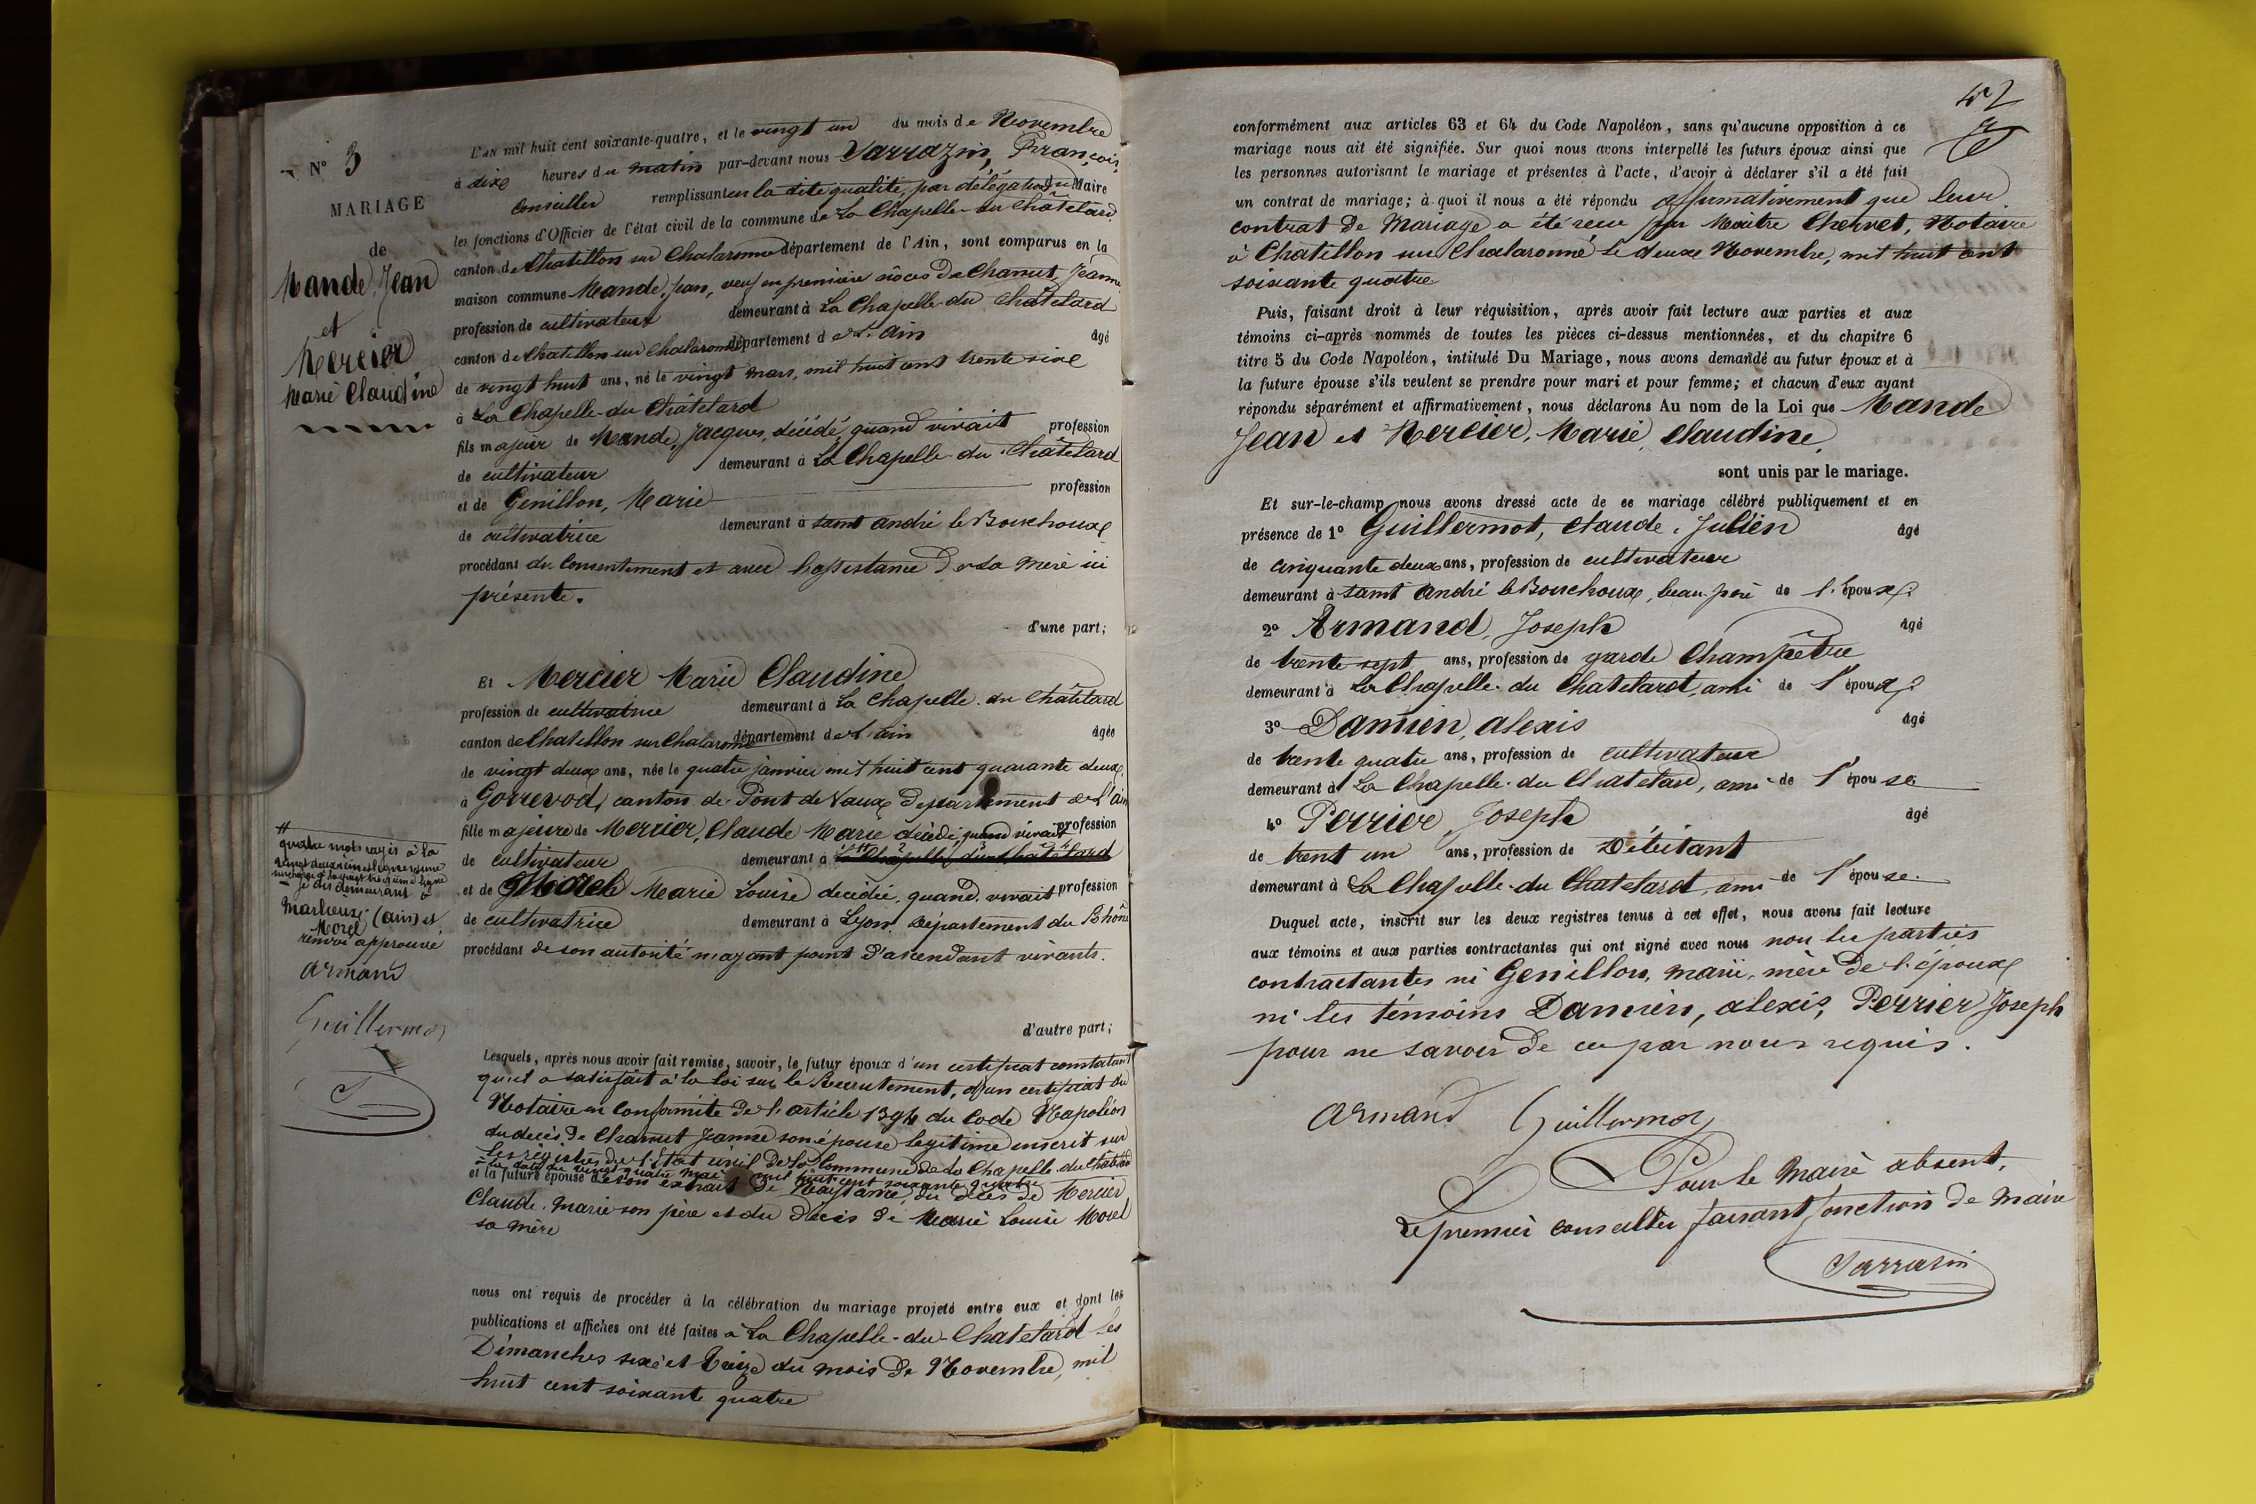 N° 3
MARIAGE
de
Mande, Jean
et
Mercier
Marie Claudine
L'AN mil huit cent soixante-quatre, et le vingt un du mois de Novembre
à dix heures du matin par-devant nous Sarrazin, François,
Conseiller remplissant en la dite qualité, par délégation du Maire
les fonctions d'Officier de l'état civil de la commune de La Chapelle-du Chatelard
canton de Chatillon sur Chalaronne département de l'Ain, sont comparus en la
maison commune Mande, Jean, veuf en première nôces de Chanut, Jeanne
profession de cultivateur demeurant à La Chapelle-du Châtelard
canton de Chatillon sur Chalaronne département de L'Ain âgé
de vingt huit ans, né le vingt mars, mil huit cent trente six
à La Chapelle-du Châtelard
fils majeur de Mande, Jacques, décédé, quand vivait profession
de cultivateur demeurant à La Chapelle-du-Châtelard
et de Genillon, Marie profession
de cultivatrice demeurant à saint andré le Bouchoux
procédant du Consentement et avec l'assistance de sa mère ici
présente.
d'une part;
Et Mercier Marie Claudine
profession de cultivatrice demeurant à La Chapelle-du Châtelard
canton de Chatillon sur Chalaronne département de L'ain âgée
de vingt deux ans, née le quatre janvier mil huit cent quarante deux,
à Gorrevod, canton de Pont de Vaux Département de L'ain
fille majeure de Mercier, Claude Marie décédé, quand vivait profession
de cultivateur demeurant à La Chapelle du Châtelard
et de Morel Marie Louise décédée, quand vivait profession
de cultivatrice demeurant à Lyon, Département du Rhône
procédant de son autorité n'ayant point d'ascendant vivants.
quatre mots rayés à la
vingt deuxième ligne
je dis demeurant à
Marlieux (ain) et
Morel
renvoi approuvé
Armand
Guillermot
d'autre part;
Lesquels, après nous avoir fait remise, savoir, le futur époux d'un certificat constatant
qu'il a satisfait à la loi sur le Recrutement, d'un certificat du
Notaire en conformité de l'article 1394 du Code Napoléon
du décès de Chanut Jeanne son épouse légitime inscrit sur
les registres de l'Etat civil de la Commune de La Chapelle-du Chatelard
à la date du vingt quatre mai mil huit cent soixante quatre
et la future épouse de son extrait de Naissance, du décès de Mercier
Claude-Marie son père et du décès de Marie Louise Morel
sa mère
nous ont requis de procéder à la célébration du mariage projeté entre eux et dont les
publications et affiches ont été faites à La Chapelle-du-Chatelard les
Dimanches six et treize du mois de Novembre, mil
huit cent soixante quatre
42
conformément aux articles 63 et 64 du Code Napoléon, sans qu'aucune opposition à ce
mariage nous ait été signifiée. Sur quoi nous avons interpellé les futurs époux ainsi que
les personnes autorisant le mariage et présentes à l'acte, d'avoir à déclarer s'il a été fait
un contrat de mariage; à quoi il nous a été répondu affirmativement que leur
contrat de Mariage a été reçu par Maître Chervet, Notaire
à Chatillon sur Chalaronne le deux Novembre, mil huit cent
soixante quatre
Puis, faisant droit à leur réquisition, après avoir fait lecture aux parties et aux
témoins ci-après nommés de toutes les pièces ci-dessus mentionnées, et du chapitre 6
titre 5 du Code Napoléon, intitulé Du Mariage, nous avons demandé au futur époux et à
la future épouse s'ils veulent se prendre pour mari et pour femme; et chacun d'eux ayant
répondu séparément et affirmativement, nous déclarons Au nom de la Loi que Mande
Jean et Mercier, Marie Claudine
sont unis par le mariage.
Et sur-le-champ nous avons dressé acte de ce mariage célébré publiquement et en
présence de 1° Guillermot, Claude-Julien âgé
de cinquante deux ans, profession de cultivateur
demeurant à saint André le Bouchoux, beau-père de l'époux,
2° Armand, Joseph âgé
de trente sept ans, profession de garde Champêtre
demeurant à La Chapelle-du Chatelard, ami de l'époux,
3° Damien, alexis âgé
de trente quatre ans, profession de cultivateur
demeurant à La Chapelle-du Chatelard, ami de l'épouse
4° Perrier, Joseph âgé
de trent un ans, profession de Débitant
demeurant à La Chapelle-du Chatelard, ami de l'épouse.
Duquel acte, inscrit sur les deux registres tenus à cet effet, nous avons fait lecture
aux témoins et aux parties contractantes qui ont signé avec nous non les parties
contractantes ni Genillon, Marie, mère de l'époux
ni les témoins Damien, alexis, Perrier Joseph
pour ne savoir de ce par nous requis.
Armand Guillermot
Pour le Maire absent,
Le premier conseiller faisant fonction de Maire
Sarrasin